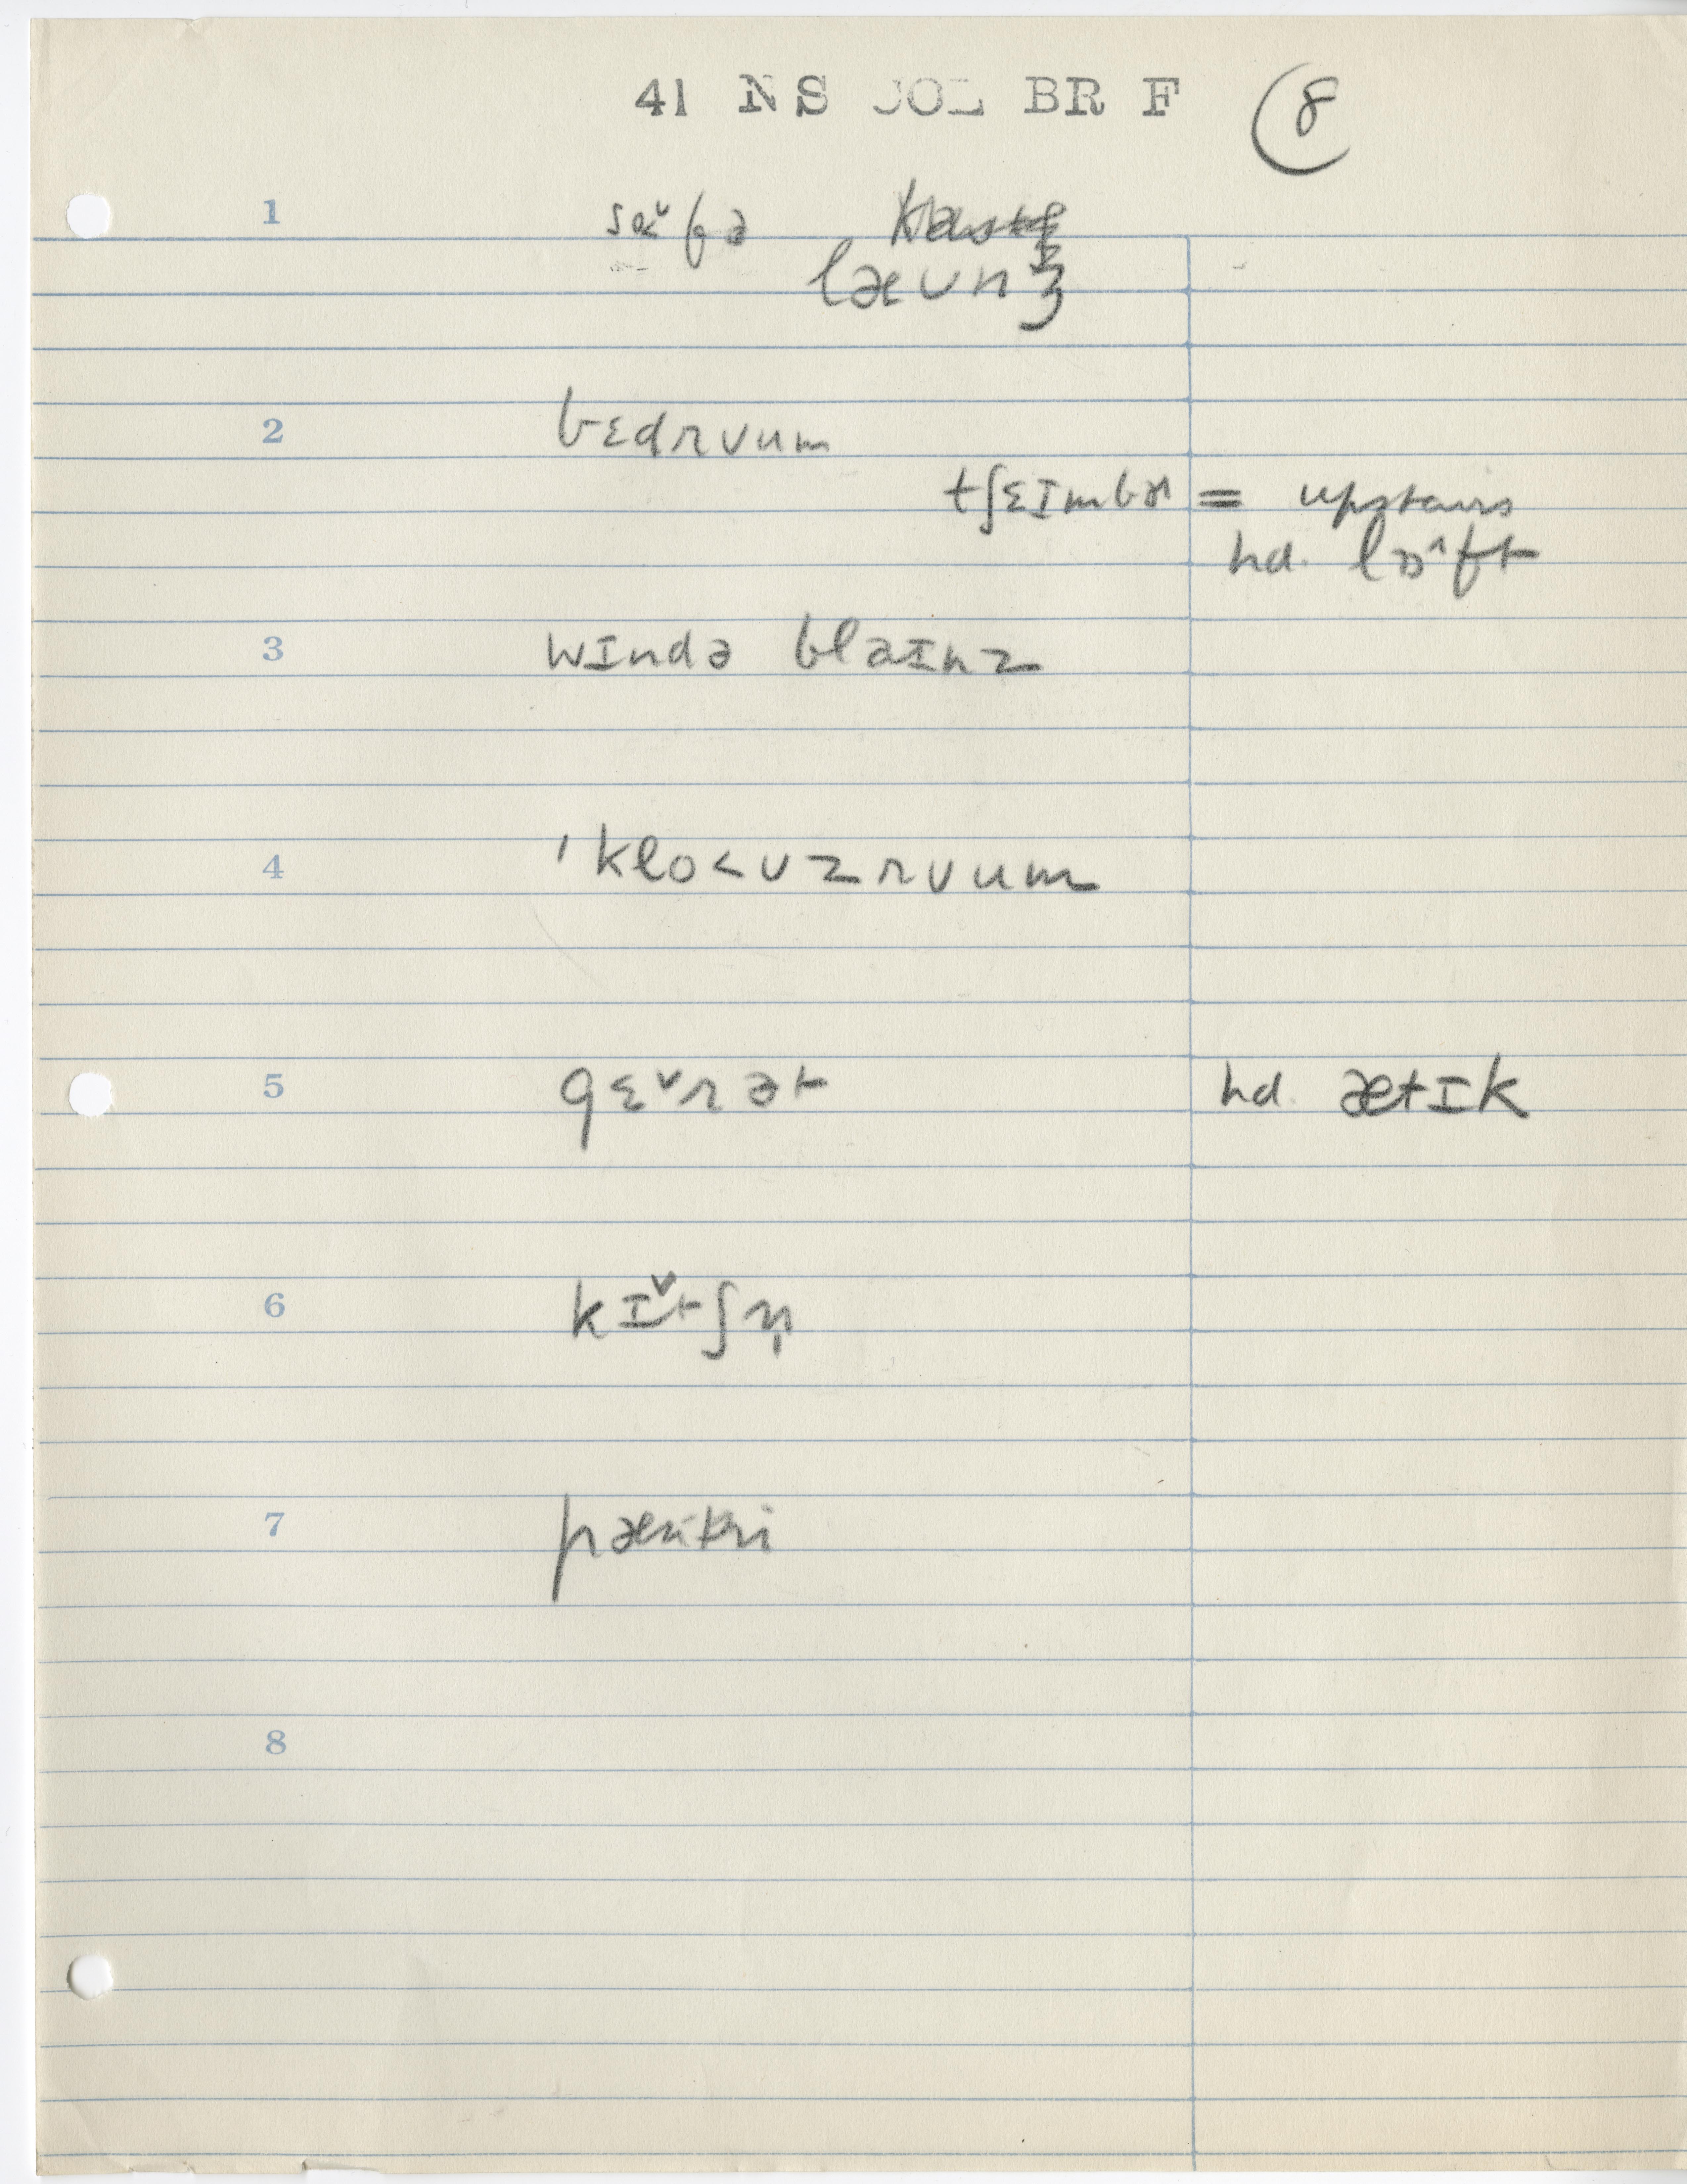 41 NS JOL BR F 8
1 sɑ˅fə
læʊnʒ
2 bɛdrʊum
tʃɛɪmbɚ = upstairs
hd. lɒ^ft
3 wɪndə blaɪnz
4 ˈklo<ʊzrʊum
5 gɛ˅rət hd. ætɪk
6 kɪ˅tʃn̩
7 pæntri
8